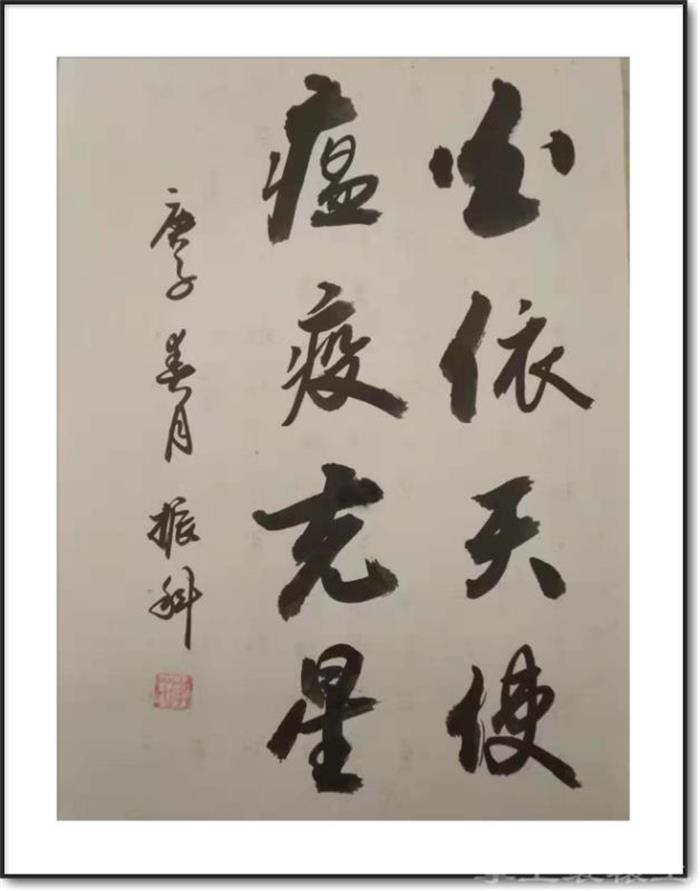 白依天使
瘟疫克星
庚子春月振科